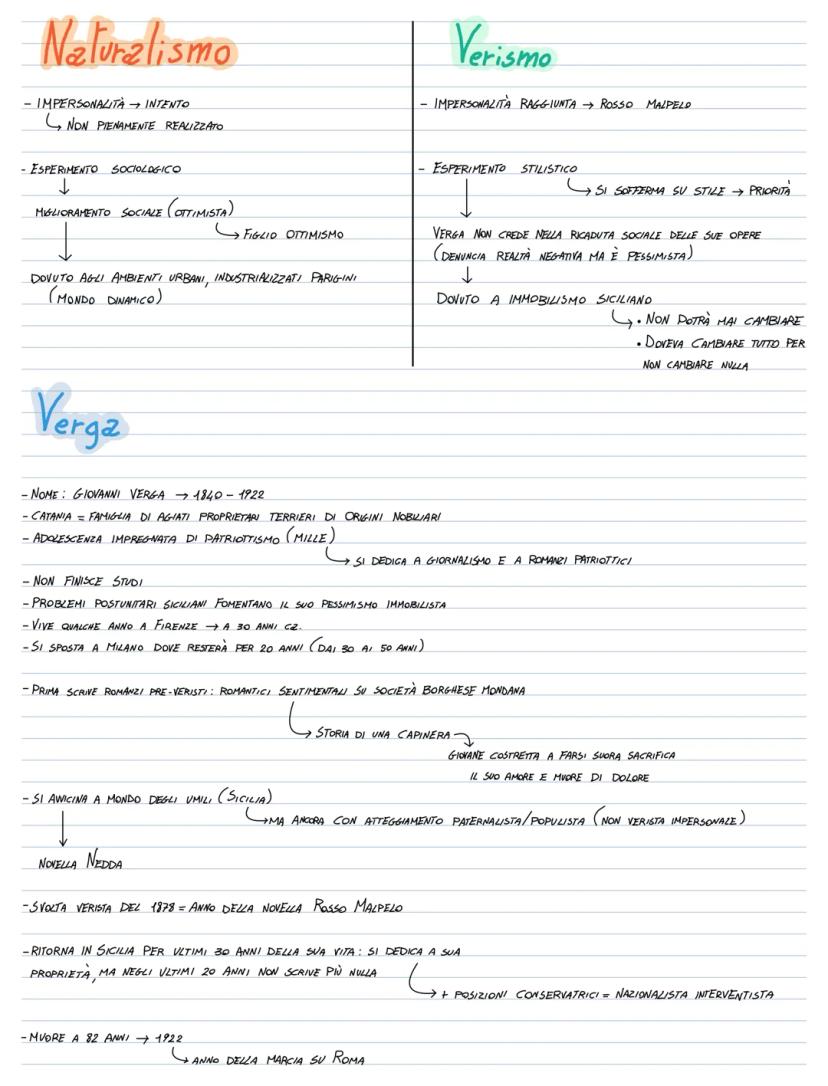 Naturalismo
- IMPERSONALITÀ → INTENTO
↳ NON PIENAMENTE REALIZZATO
- ESPERIMENTO SOCIOLOGICO
↓
MIGLIORAMENTO SOCIALE (OTTIMISTA)
↳ FIGLIO OTTIMISMO
↓
DOVUTO AGLI AMBIENTI URBANI, INDUSTRIALIZZATI PARIGINI
(MONDO DINAMICO)
Verismo
- IMPERSONALITÀ RAGGIUNTA → ROSSO MALPELO
- ESPERIMENTO STILISTICO
↳ SI SOFFERMA SU STILE → PRIORITÀ
↓
VERGA NON CREDE NELLA RICADUTA SOCIALE DELLE SUE OPERE
(DENUNCIA REALTÀ NEGATIVA MA È PESSIMISTA)
↓
DOVUTO A IMMOBILISMO SICILIANO
↳ • NON POTRÀ MAI CAMBIARE
• DOVEVA CAMBIARE TUTTO PER
NON CAMBIARE NULLA
Verga
- NOME: GIOVANNI VERGA → 1840 - 1922
- CATANIA = FAMIGLIA DI AGIATI PROPRIETARI TERRIERI DI ORIGINI NOBILIARI
- ADOLESCENZA IMPREGNATA DI PATRIOTTISMO (MILLE)
↳ SI DEDICA A GIORNALISMO E A ROMANZI PATRIOTTICI
- NON FINISCE STUDI
- PROBLEMI POSTUNITARI SICILIANI FOMENTANO IL SUO PESSIMISMO IMMOBILISTA
- VIVE QUALCHE ANNO A FIRENZE → A 30 ANNI CZ.
- SI SPOSTA A MILANO DOVE RESTERÀ PER 20 ANNI (DAI 30 AI 50 ANNI)
- PRIMA SCRIVE ROMANZI PRE-VERISTI: ROMANTICI SENTIMENTALI SU SOCIETÀ BORGHESE MONDANA
↳ STORIA DI UNA CAPINERA
GIOVANE COSTRETTA A FARSI SUORA SACRIFICA
IL SUO AMORE E MUORE DI DOLORE
- SI AVVICINA A MONDO DEGLI UMILI (SICILIA)
↳ MA ANCORA CON ATTEGGIAMENTO PATERNALISTA/POPULISTA (NON VERISTA IMPERSONALE)
↓
NOVELLA NEDDA
- SVOLTA VERISTA DEL 1878 = ANNO DELLA NOVELLA ROSSO MALPELO
- RITORNA IN SICILIA PER ULTIMI 30 ANNI DELLA SUA VITA: SI DEDICA A SUA
PROPRIETÀ, MA NEGLI ULTIMI 20 ANNI NON SCRIVE PIÙ NULLA
↳ + POSIZIONI CONSERVATRICI = NAZIONALISTA INTERVENTISTA
- MUORE A 82 ANNI → 1922
↳ ANNO DELLA MARCIA SU ROMA